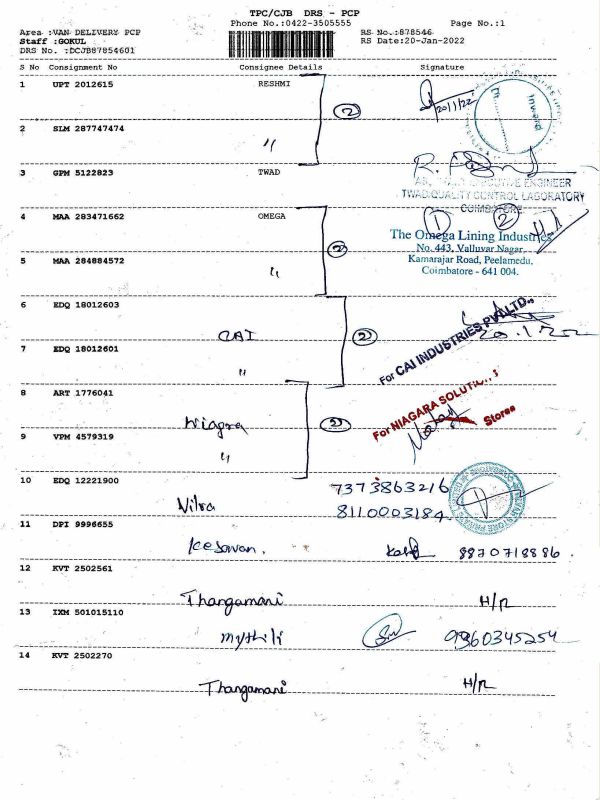 TPC/CJB DRS - PCP
Phone No.:0422-3505555 Page No.:1
Area :VAN DELIVERY PCP RS No.:878546
Staff :GOKUL RS Date:20-Jan-2022
DRS No. :DCJB87854601
S No Consignment No Consignee Details Signature
1 UPT 2012615 RESHMI
2 20/1/22 Inward
2 SLM 287747474 〃
3 GPM 5122823 TWAD
EXECUTIVE ENGINEER
TWAD QUALITY CONTROL LABORATORY
COIMBATORE
4 MAA 283471662 OMEGA 1 2
The Omega Lining Industries
No. 443, Valluvar Nagar,
2
5 MAA 284884572 〃 Kamarajar Road, Peelamedu,
Coimbatore - 641 004.
6 EDQ 18012603
CAI 2 For CAI INDUSTRIES PVT LTD.,
7 EDQ 18012601
〃
8 ART 1776041
Niagra 2 For NIAGARA SOLUTIONS
Stores
9 VPM 4579319
〃
10 EDQ 12221900 7373863216
Vilra 8110003184
11 DPI 9996655
Kesavan. 8870718886
12 KVT 2502561
Thangamani H/R
13 IXM 501015110
Mythili 9360345254
14 KVT 2502270
Thangamani H/R